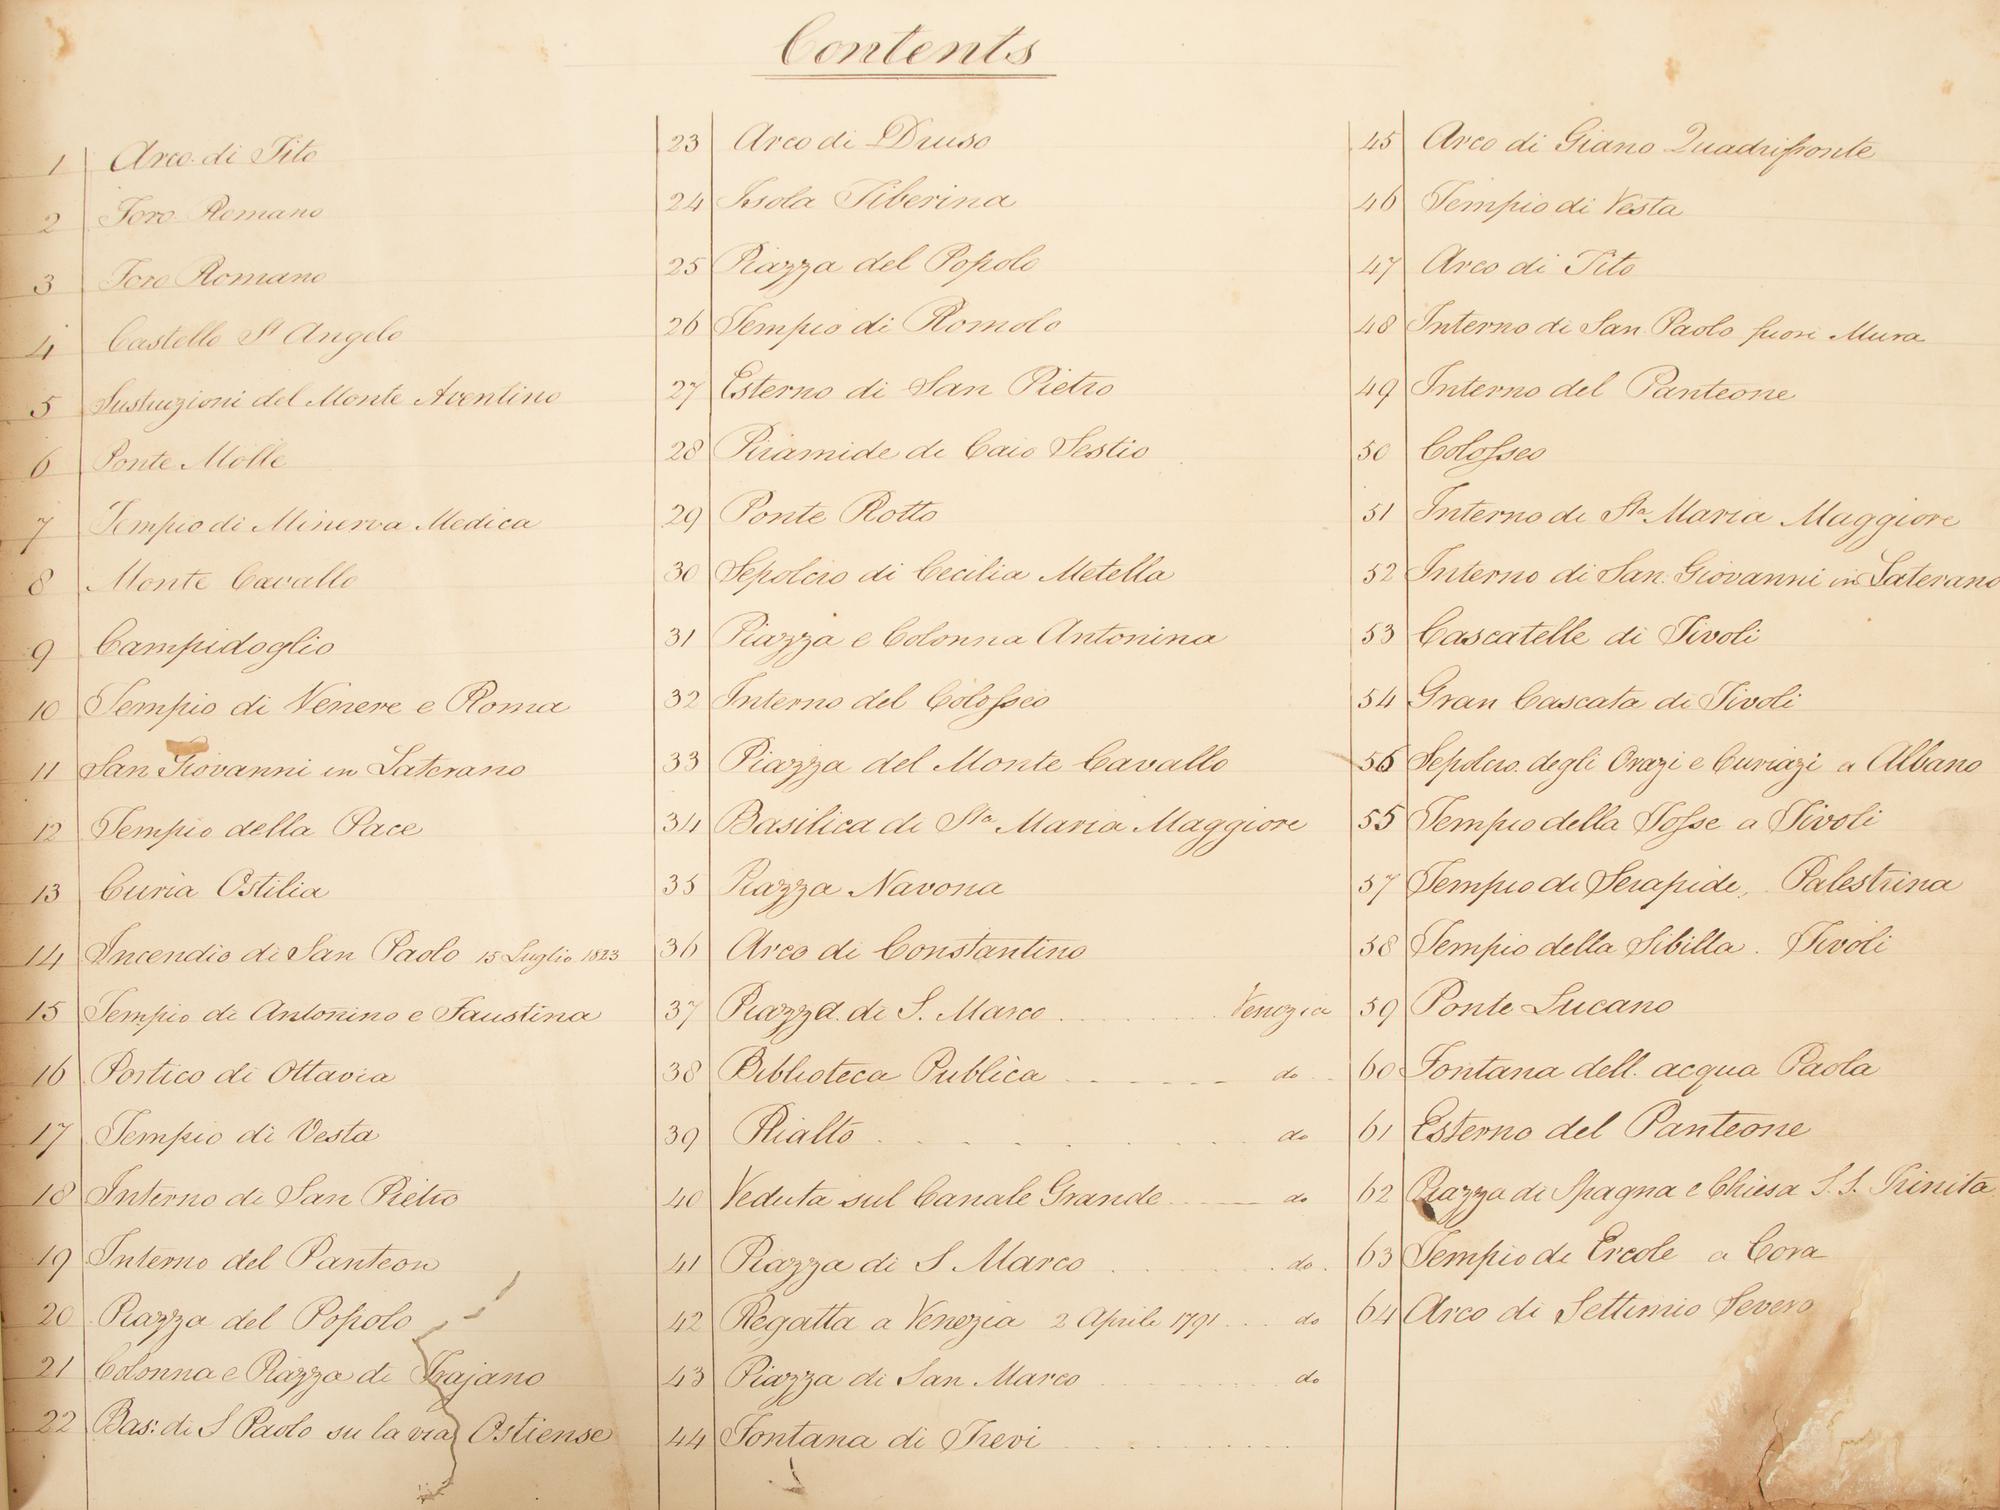 Contents
1 Arco di Tito
2 Foro Romano
3 Foro Romano
4 Castello St Angelo
5 Sustruzioni del Monte Aventino
6 Ponte Molle
7 Tempio di Minerva Medica
8 Monte Cavallo
9 Campidoglio
10 Tempio di Venere e Roma
11 San Giovanni in Laterano
12 Tempio della Pace
13 Curia Ostilia
14 Incendio di San Paolo 15 Luglio 1823
15 Tempio di Antonino e Faustina
16 Portico di Ottavia
17 Tempio di Vesta
18 Interno di San Pietro
19 Interno del Panteon
20 Piazza del Popolo
21 Colonna e Piazza di Trajano
22 Bas: di S Paolo su la via Ostiense
23 Arco di Druso
24 Isola Tiberina
25 Piazza del Popolo
26 Tempio di Romolo
27 Esterno di San Pietro
28 Piramide di Caio Sestio
29 Ponte Rotto
30 Sepolcro di Cecilia Metella
31 Piazza e Colonna Antonina
32 Interno del Colosseo
33 Piazza del Monte Cavallo
34 Basilica di Sta Maria Maggiore
35 Piazza Navona
36 Arco di Constantino
37 Piazza di S. Marco Venezia
38 Biblioteca Publica do
39 Rialto do
40 Veduta sul Canale Grande do
41 Piazza di S Marco do
42 Regatta a Venezia 2 Aprile 1791 do
43 Piazza di San Marco do
44 Fontana di Trevi
45 Arco di Giano Quadrifronte
46 Tempio di Vesta
47 Arco di Tito
48 Interno di San Paolo fuori Mura
49 Interno del Panteone
50 Colosseo
51 Interno di Sta Maria Maggiore
52 Interno di San Giovanni in Laterano
53 Cascatelle di Tivoli
54 Gran Cascata di Tivoli
56 Sepolcro degli Orazi e Curiazi a Albano
55 Tempio della Tosse a Tivoli
57 Tempio di Serapide, Palestrina
58 Tempio della Sibilla. Tivoli
59 Ponte Lucano
60 Fontana dell. acqua Paola
61 Esterno del Panteone
62 Piazza di Spagna e Chiesa S.S. Trinita
63 Tempio di Ercole a Cora
64 Arco di Settimio Severo